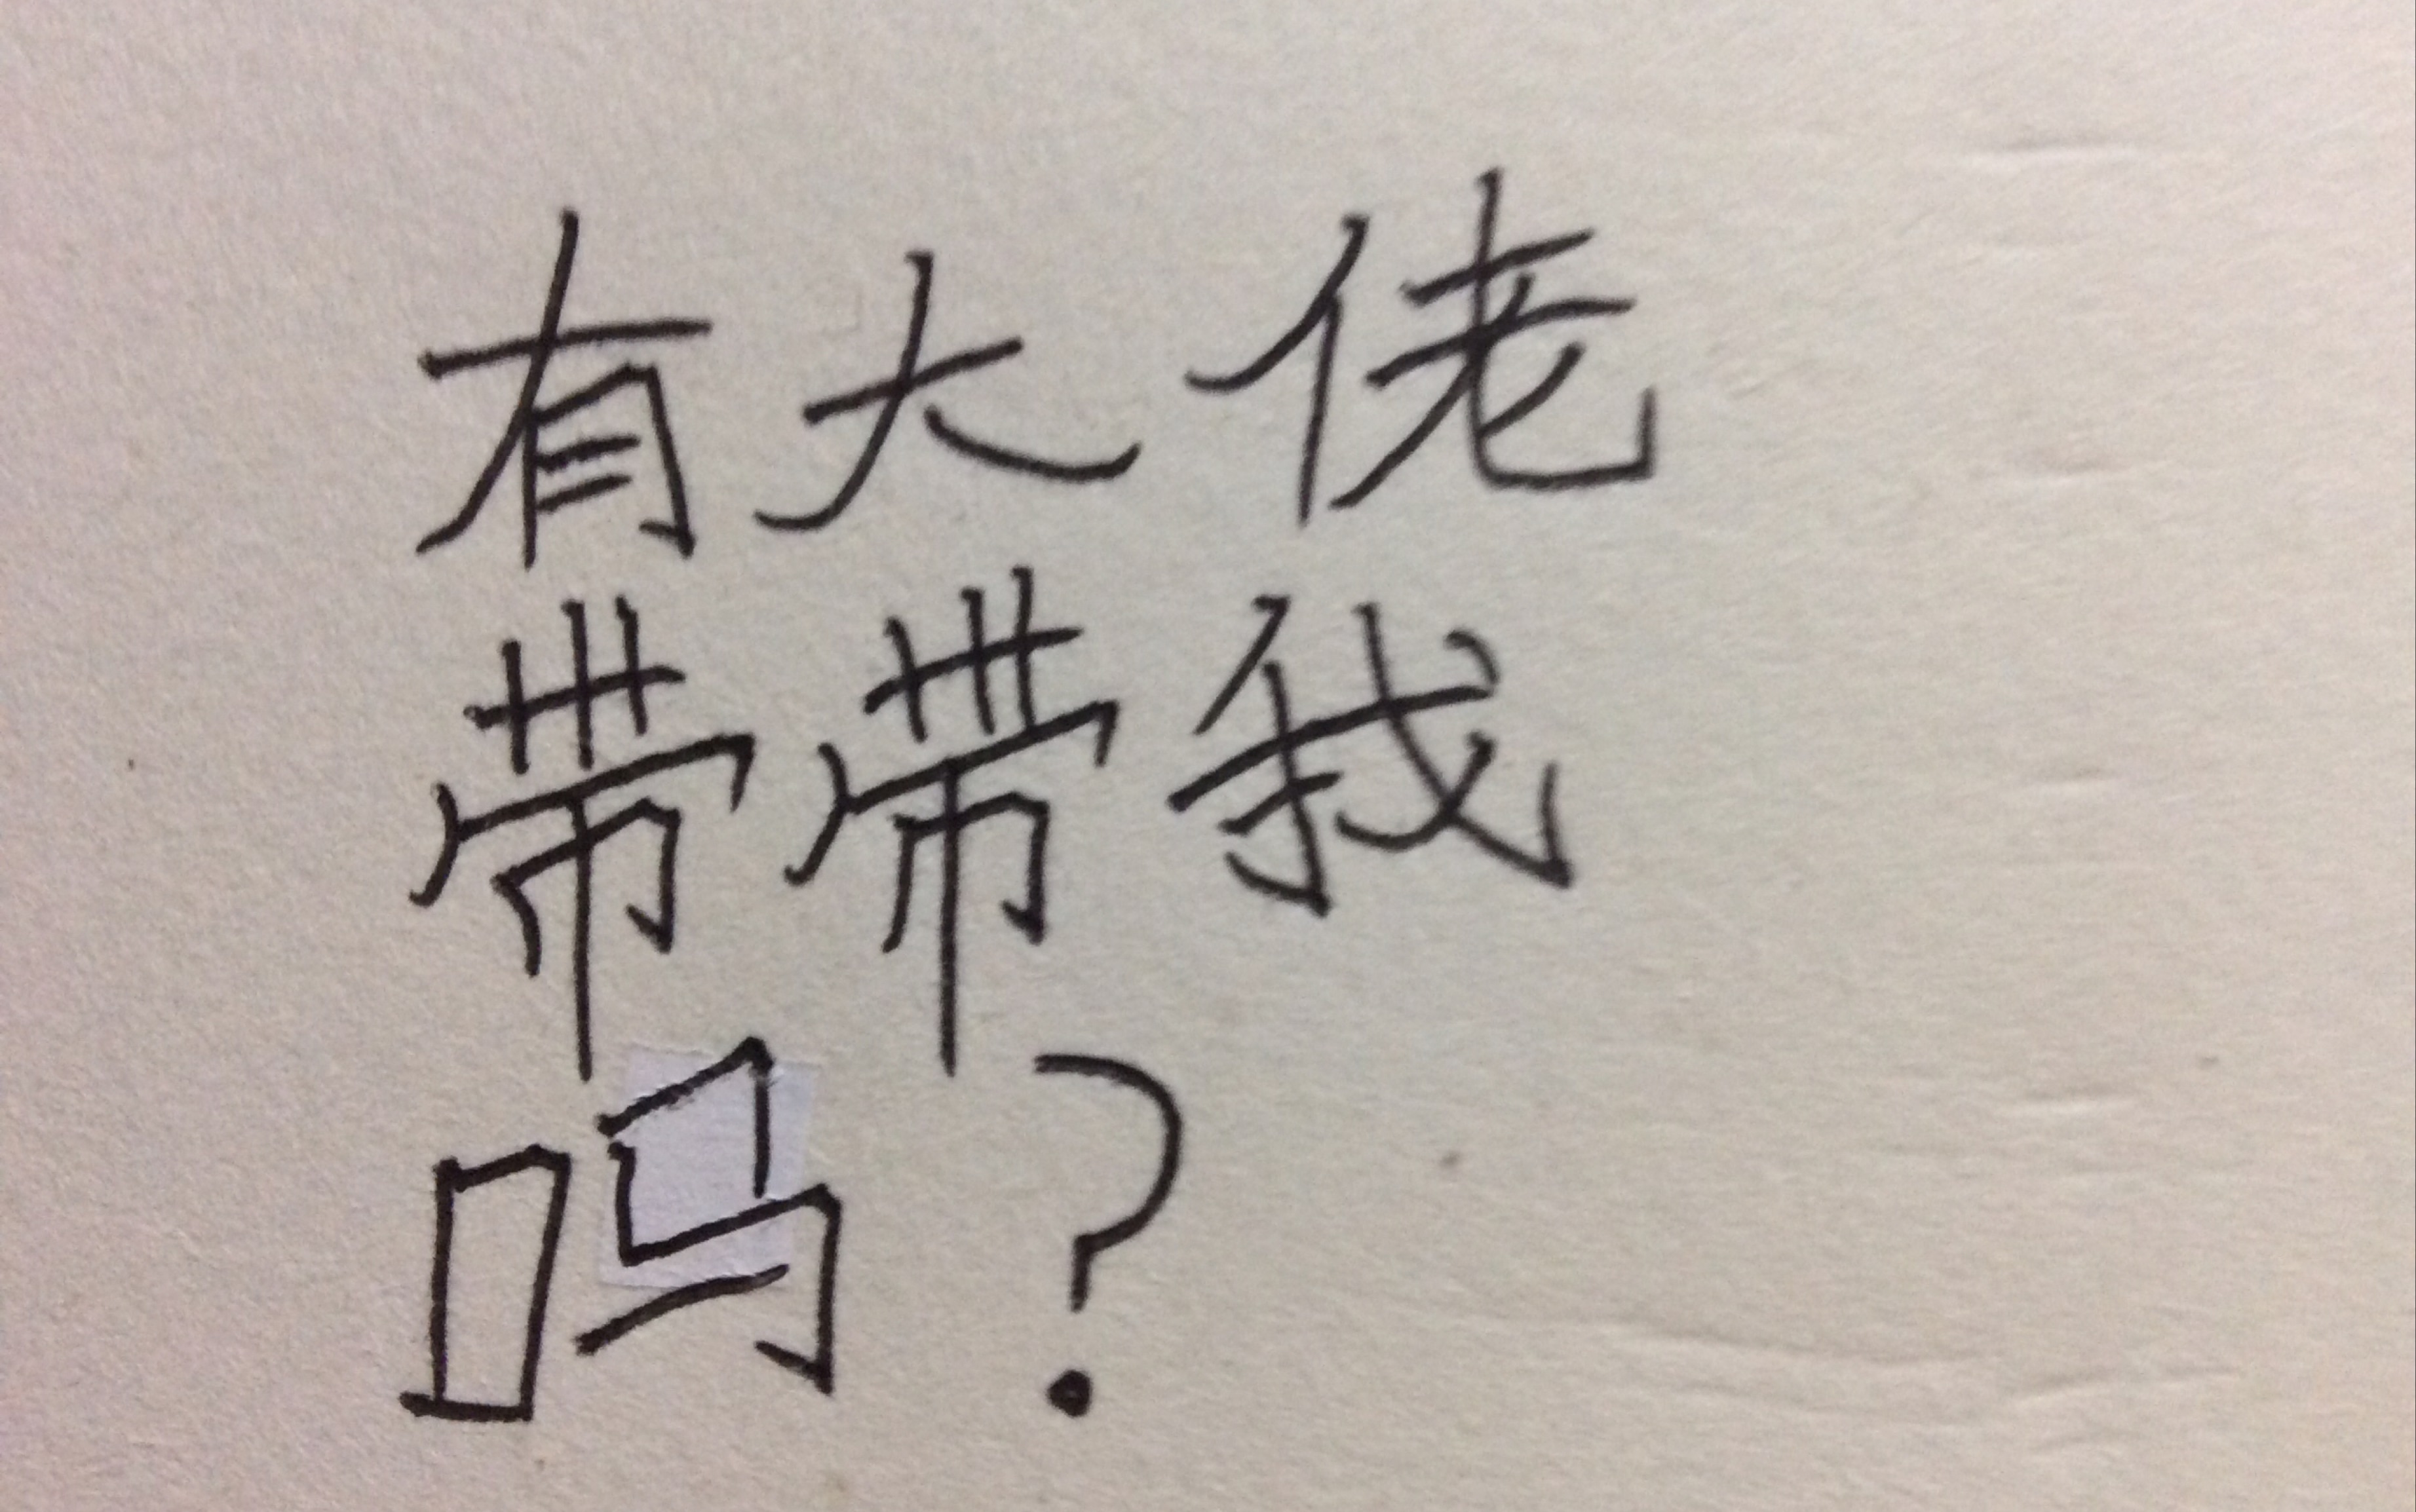 有大佬
带带我
吗？